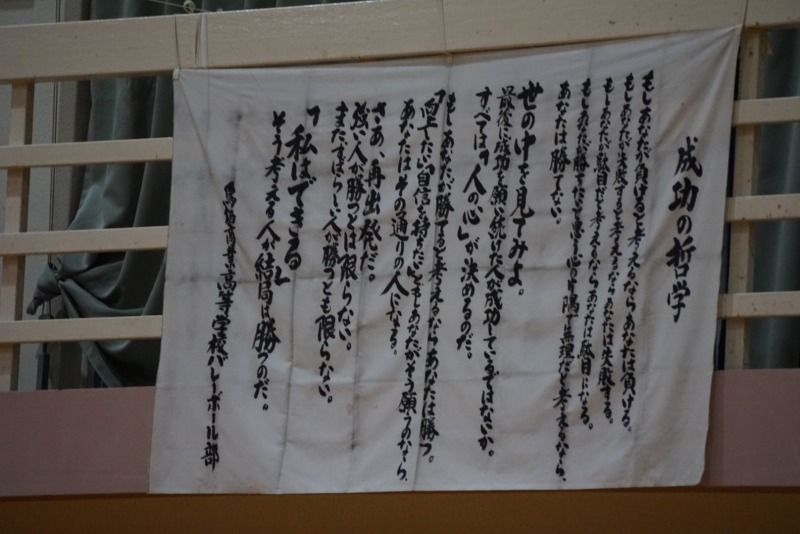 成功の哲学
もしあなたが負けると考えるならあなたは負ける。
もしあなたが失敗すると考えるならあなたは失敗する。
もしあなたが駄目だと考えるならあなたは駄目になる。
もしあなたが勝てたらなと思う心の片隅で無理だと考えるなら、
あなたは勝てない。
世の中を見てみよ。
最後に成功を願い続けた人が成功しているではないか。
すべては「人の心」が決めるのだ。
もしあなたが勝てると考えるならあなたは勝つ。
「向上したい」「自信を持ちたい」ともしあなたがそう願うのなら、
あなたはその通りの人になる。
さあ、再出発だ。
強い人が勝つとは限らない。
またすばらしい人が勝つとも限らない。
「私はできる」
そう考える人が結局は勝つのだ。
高等学校バレーボール部